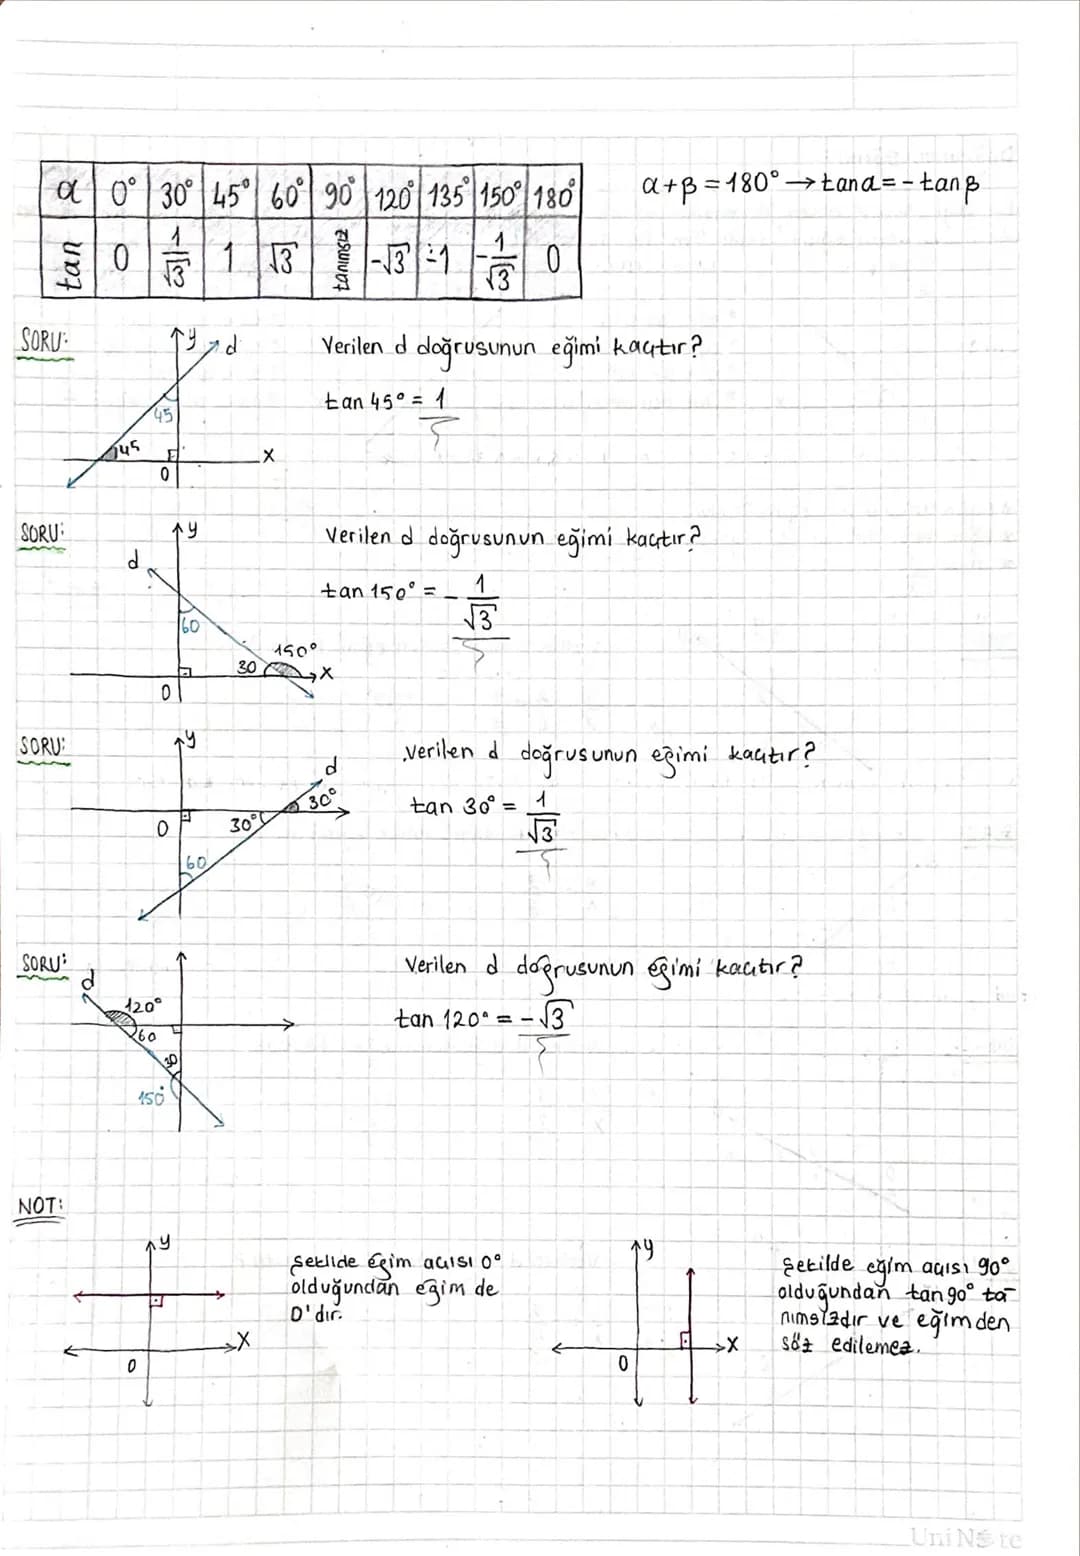 α 0° 30° 45° 60° 90° 120° 135° 150° 180°
tan 0 1/√3 1 √3 tanımsız -√3 -1 -1/√3 0
α+β=180° → tanα=-tanβ
SORU:
y d
45
45
x
0
Verilen d doğrusunun eğimi kaçtır?
tan 45° = 1
SORU:
y
d
60
150°
30
x
0
Verilen d doğrusunun eğimi kaçtır?
tan 150° = -1/√3
SORU:
y
d
30°
0
30°
60
verilen d doğrusunun eğimi kaçtır?
tan 30° = 1/√3
SORU:
d
120°
60
30
150°
Verilen d doğrusunun eğimi kaçtır?
tan 120° = -√3
NOT:
y
x
0
Şekilde eğim açısı 0°
olduğundan eğim de
0'dır.
y
x
0
Şekilde eğim açısı 90°
olduğundan tan90° ta-
nımsızdır ve eğimden
söz edilemez.